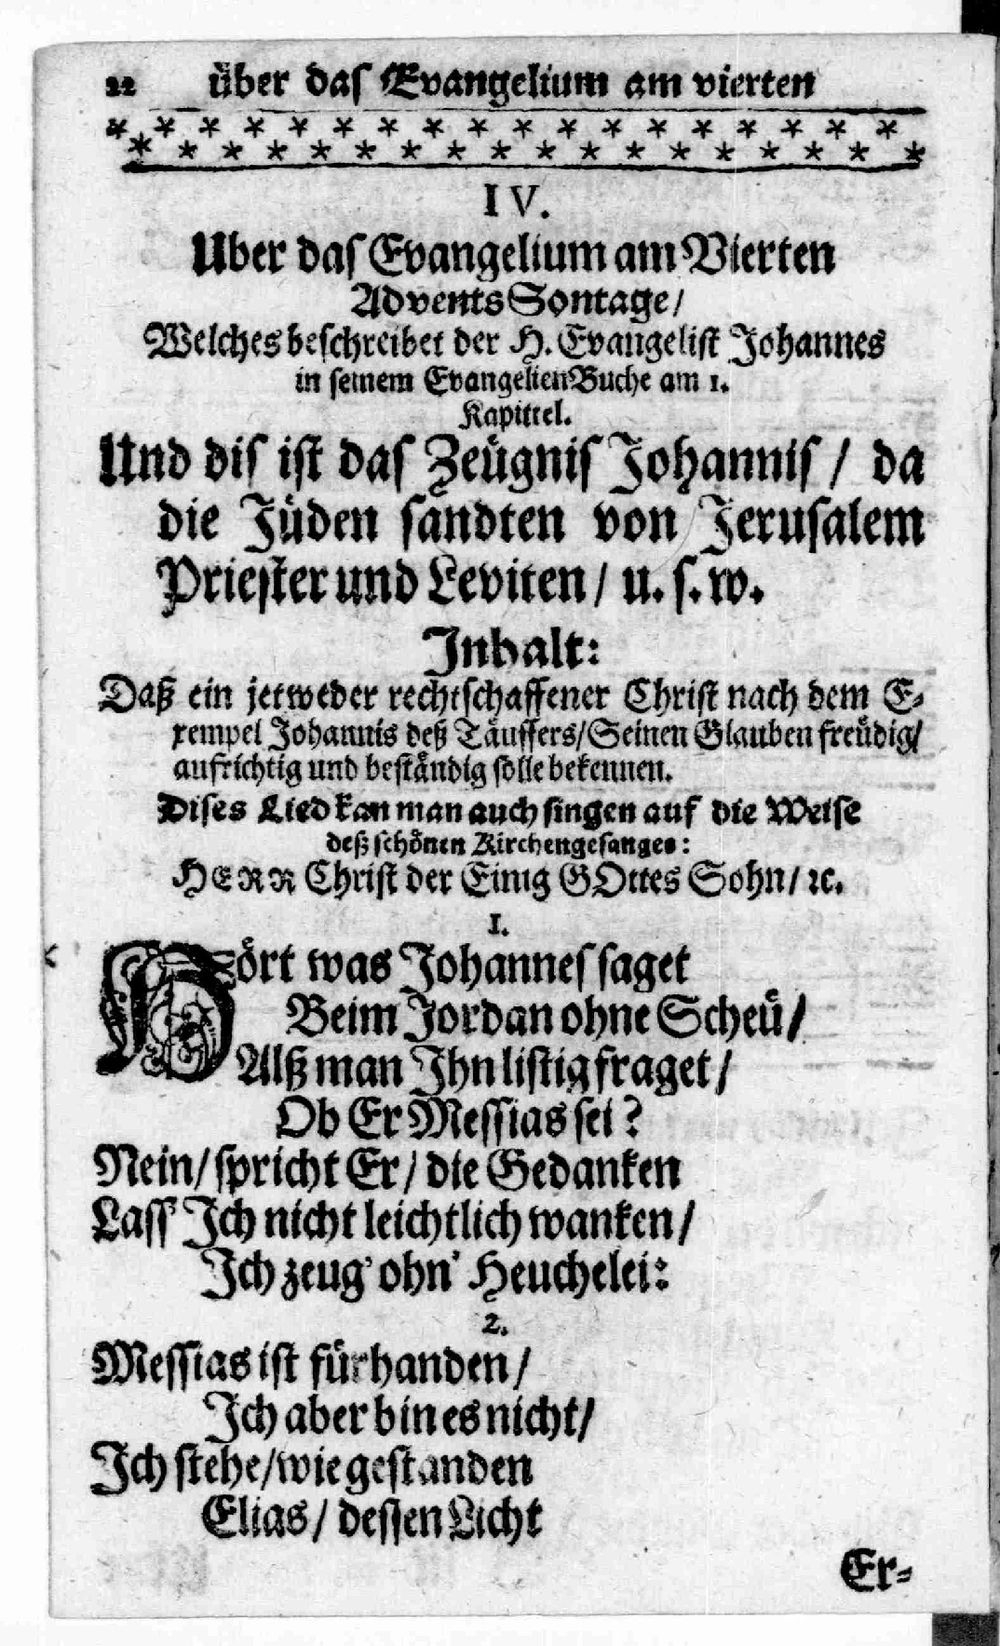 22 über das Evangelium am vierten
IV.
Uber das Evangelium am Vierten
Advents Sontage/
Welches beschreibet der H. Evangelist Johannes
in seinem Evangelien Buche am 1.
Kapittel.
Und dis ist das Zeügnis Johannis / da
die Jüden sandten von Jerusalem
Priester und Leviten / u. s. w.
Inhalt:
Daß ein jetweder rechtschaffener Christ nach dem E-
xempel Johannis deß Täuffers/ Seinen Glauben freüdig/
aufrichtig und beständig solle bekennen.
Dises Lied kan man auch singen auf die Weise
deß schönen Kirchengesanges:
HERR Christ der Einig GOttes Sohn/ ꝛc.
1.
Hört was Johannes saget
Beim Jordan ohne Scheü/
Alß man Ihn listig fraget/
Ob Er Messias sei?
Nein/ spricht Er/ die Gedanken
Lass' Ich nicht leichtlich wanken/
Ich zeug' ohn' Heuchelei:
2.
Messias ist fürhanden/
Ich aber bin es nicht/
Ich stehe/ wie gestanden
Elias/ dessen Licht
Er-